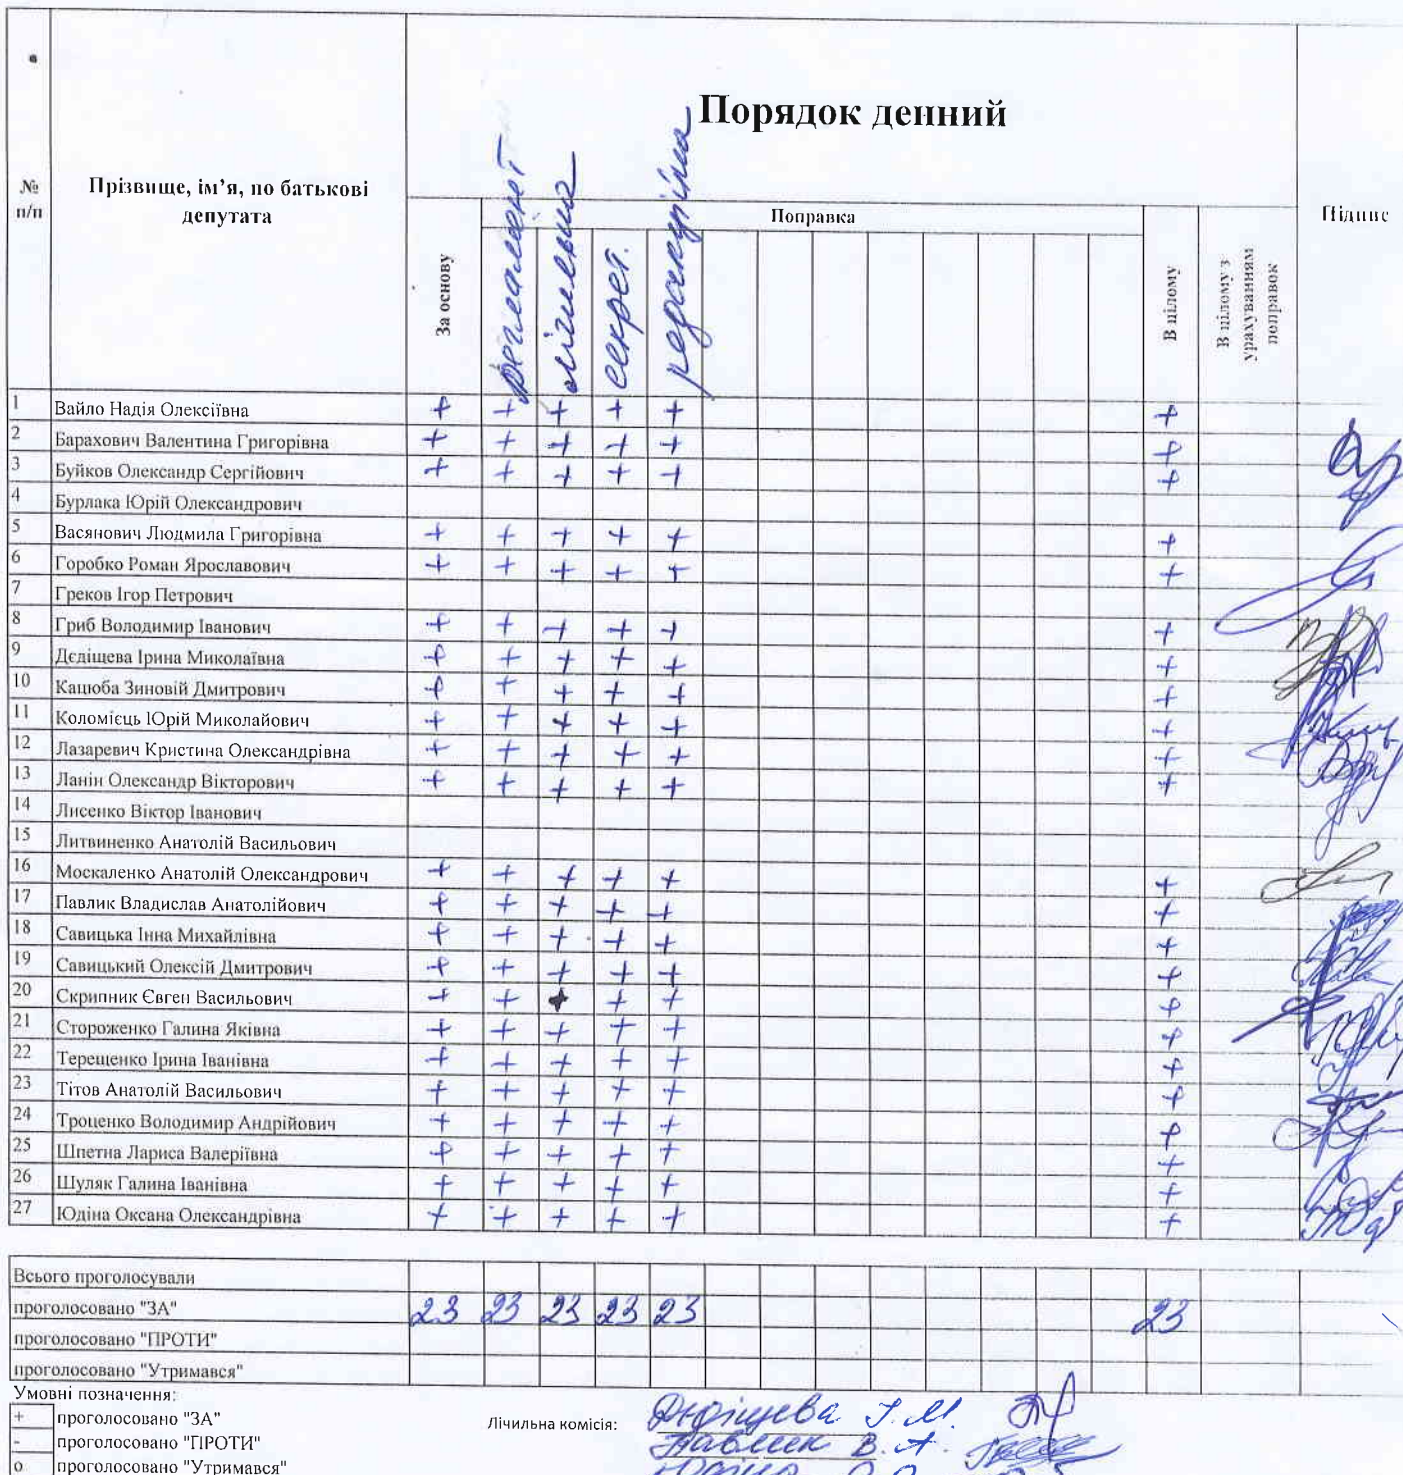 Порядок денний
№ п/п
Прізвище, ім’я, по батькові депутата
За основу
Поправка
регламент
лічильна
секрет.
редакційна
В цілому
В цілому з урахуванням поправок
Підпис
1 Вайло Надія Олексіївна + + + + + +
2 Барахович Валентина Григорівна + + + + + +
3 Буйков Олександр Сергійович + + + + + +
4 Бурлака Юрій Олександрович
5 Васянович Людмила Григорівна + + + + + +
6 Горобко Роман Ярославович + + + + + +
7 Греков Ігор Петрович
8 Гриб Володимир Іванович + + + + + +
9 Дєдіщева Ірина Миколаївна + + + + + +
10 Кацюба Зиновій Дмитрович + + + + + +
11 Коломієць Юрій Миколайович + + + + + +
12 Лазаревич Кристина Олександрівна + + + + + +
13 Ланін Олександр Вікторович + + + + + +
14 Лисенко Віктор Іванович
15 Литвиненко Анатолій Васильович
16 Москаленко Анатолій Олександрович + + + + + +
17 Павлик Владислав Анатолійович + + + + + +
18 Савицька Інна Михайлівна + + + + + +
19 Савицький Олексій Дмитрович + + + + + +
20 Скрипник Євген Васильович + + + + + +
21 Стороженко Галина Яківна + + + + + +
22 Терещенко Ірина Іванівна + + + + + +
23 Тітов Анатолій Васильович + + + + + +
24 Троценко Володимир Андрійович + + + + + +
25 Шпетна Лариса Валеріївна + + + + + +
26 Шуляк Галина Іванівна + + + + + +
27 Юдіна Оксана Олександрівна + + + + + +
Всього проголосували
проголосовано "ЗА" 23 23 23 23 23 23
проголосовано "ПРОТИ"
проголосовано "Утримався"
Умовні позначення:
+ проголосовано "ЗА"
- проголосовано "ПРОТИ"
о проголосовано "Утримався"
Лічильна комісія:
Дєдіщева І. М.
Павлик В. А.